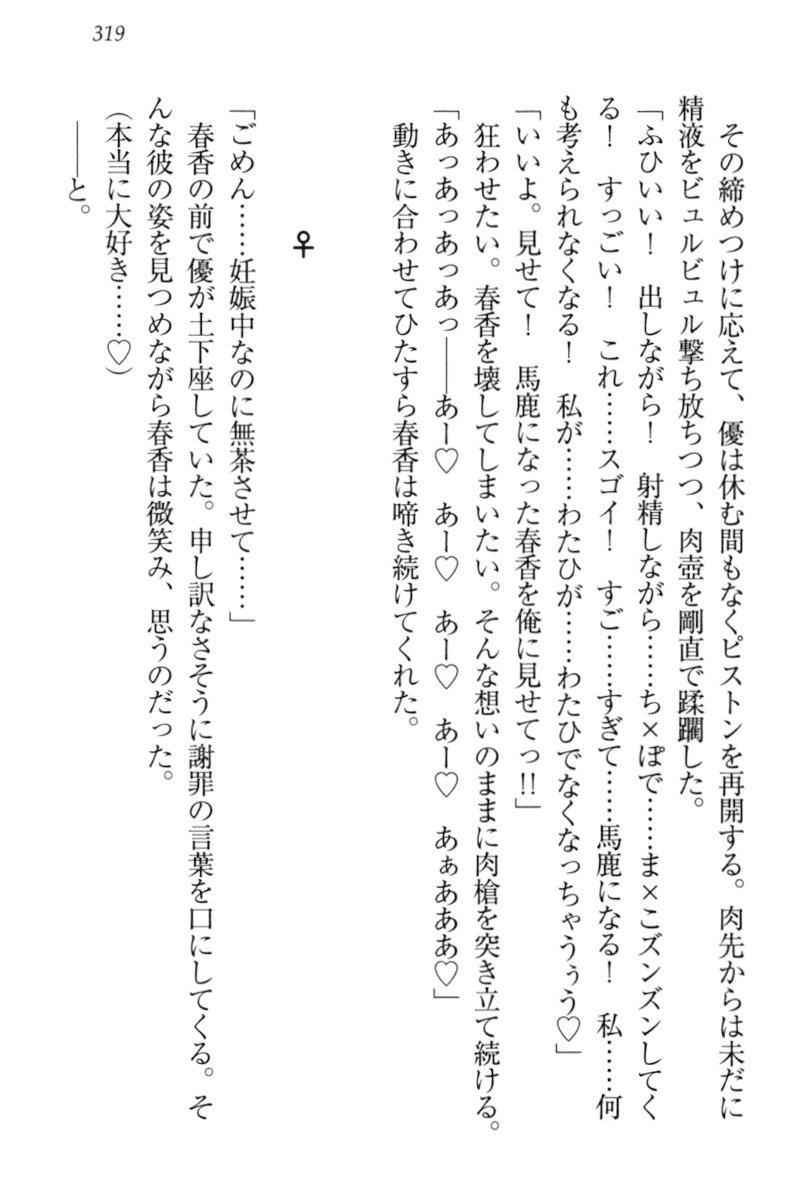 319
その締めつけに応えて、優は休む間もなくピストンを再開する。肉先からは未だに
精液をビュルビュル撃ち放ちつつ、肉壺を剛直で蹂躙した。
「ふひいい！　出しながら！　射精しながら……ち×ぽで……ま×こズンズンしてく
る！　すっごい！　これ……スゴイ！　すご……すぎて……馬鹿になる！　私……何
も考えられなくなる！　私が……わたひが……わたひでなくなっちゃうぅう♡」
「いいよ。見せて！　馬鹿になった春香を俺に見せてっ!!」
狂わせたい。春香を壊してしまいたい。そんな想いのままに肉槍を突き立て続ける。
「あっあっあっあっ――あー♡　あー♡　あー♡　あー♡　あぁあああ♡」
動きに合わせてひたすら春香は啼き続けてくれた。
♀
「ごめん……妊娠中なのに無茶させて……」
春香の前で優が土下座していた。申し訳なさそうに謝罪の言葉を口にしてくる。そ
んな彼の姿を見つめながら春香は微笑み、思うのだった。
（本当に大好き……♡）
――と。